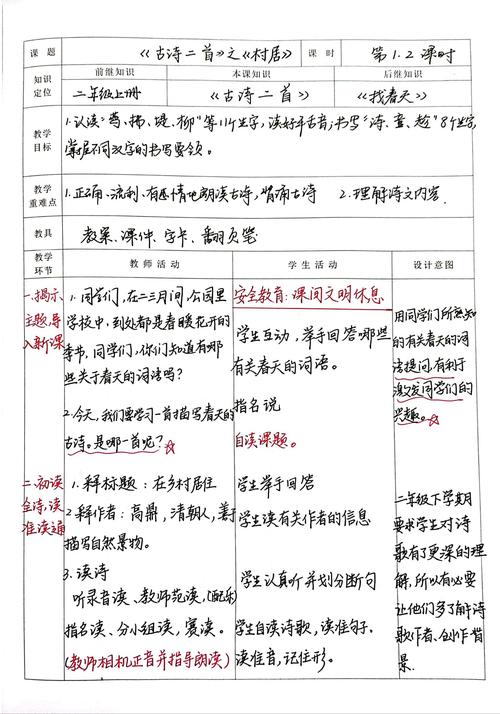 课题 《古诗二首》之《村居》 课时 第1.2课时
知识定位 前继知识 本课知识 后继知识
二年级上册 《古诗二首》 《找春天》
教学目标 1.认读“莺、拂、堤、柳”等11个生字,读好平舌音;书写“诗、童、趁”8个生字,
掌握不同汉字的书写要领。
教学重难点 1.正确、流利、有感情地朗读古诗,背诵古诗 2.理解诗文内容.
教具 教案、课件、字卡、翻页笔
教学环节 教师活动 学生活动 设计意图
一、揭示
主题,导
入新课
1.同学们,在二三月间,公园里
学校中,到处都是春暖花开的
季节,同学们,你们知道有哪
些关于春天的词语吗?
2.今天,我们要学习一首描写春天的
古诗。是哪一首呢?☆
安全教育:课间文明休息
学生互动,举手回答哪些
有关春天的词语。
指名说
自读课题。
用同学们所熟知
的有关春天的词
语提问,有利于
激发同学们的
兴趣。☆
二、初读
全诗,读
准读通
1.释标题:在乡村居住
2.释作者:高鼎,清朝人,善于
描写自然景物。
3.读诗
听录音读、教师范读、(配乐)
指名读、分小组读,赛读。
(教师相机正音并指导朗读)
学生举手回答
学生读有关作者的信息
学生认真听并划分断句
学生自读诗歌,读准句子.
读准音,记住形。
二年级下学期
要求学生对诗
歌有了更深的理
解,所以有必要
让他们多了解诗
歌作者、创作背
景.